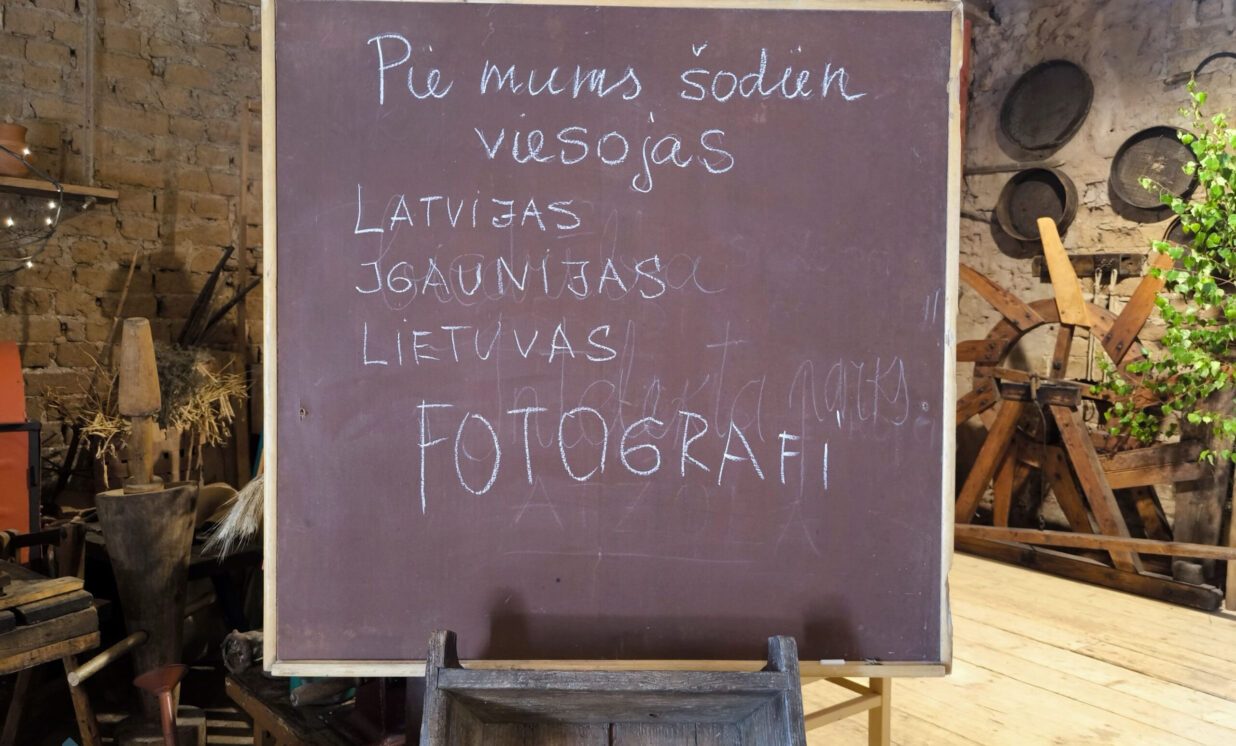 Pie mums šodien
viesojas
LATVIJAS
IGAUNIJAS
LIETUVAS
FOTOGRAFI